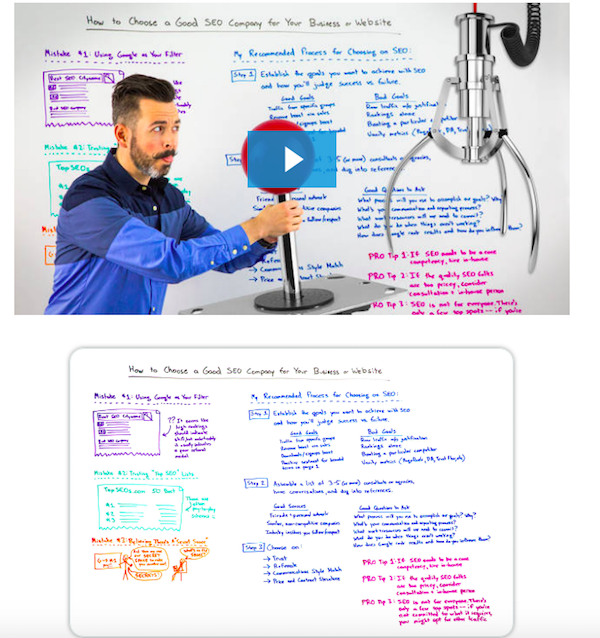 How to Choose a Good SEO Company for Your Business or Website
Mistake #1: Using Google as Your Filter
Best SEO Cityname
Best SEO company
Mistake #2: Trusting
TopSEOs
My Recommended Process for Choosing an SEO:
Step 1 Establish the goals you want to achieve with SEO
and how you'll judge success vs. failure.
Good Goals
Traffic from specific groups
Revenue boost via sales
signups boost
for branded
Bad Goals
Raw traffic w/o justification
Rankings alone
Beating a particular competitor
Vanity metrics
Step
3-5 (or more) consultants or agencies,
and dig into references.
Friend
network
companies
Referrals
→ Communications Style Match
→ Price and
Good Questions to Ask
What process will you use to accomplish my goals? Why?
What's your communication and reporting process?
What resources will we need to commit?
What do you do when things aren't working?
PRO Tip 1: If SEO needs to be a core
competency, hire in-house
PRO Tip 2: If the quality SEO folks
are too pricey, consider
consultation + in-house person
RO Tip 3: SEO is not for everyone. There's
only a few top spots -- if you're
How to Choose a Good SEO Company for Your Business or Website
Mistake #1: Using Google as Your Filter
Best SEO Cityname
Best SEO company
?? It seems like
high rankings
should indicate
skill, but unfortunately
Mistake #2: Trusting "Top SEO" Lists
TopSEOs.com
#1
#2
#3
These are
Mistake #3:
"Secret Sauce"
SECRETS!
My Recommended Process for Choosing an SEO:
Step 1 Establish the goals you want to achieve with SEO
and how you'll judge success vs. failure.
Good Goals
Traffic from specific groups
Revenue boost via sales
Downloads/signups boost
Positive sentiment for branded
terms on page 1
Bad Goals
Raw traffic w/o justification
Rankings alone
Beating a particular competitor
Vanity metrics
Step 2 Assemble a list of 3-5 (or more) consultants or agencies,
have conversations, and dig into references.
Good Sources
Friends + personal network
Similar, non-competitive companies
Industry insiders you follow/respect
Good Questions to Ask
What process will you use to accomplish my goals? Why?
What's your communication and reporting process?
What resources will we need to commit?
What do you do when things aren't working?
Step 3 Choose on:
→ Trust
→ Referrals
→ Communications Style Match
→ Price and Contract Structure
PRO Tip 1: If SEO needs to be a core
competency, hire in-house
PRO Tip 2: If the quality SEO folks
are too pricey, consider
consultation + in-house person
PRO Tip 3: SEO is not for everyone. There's
only a few top spots -- if you're
not committed to what it requires,
you might opt for other traffic